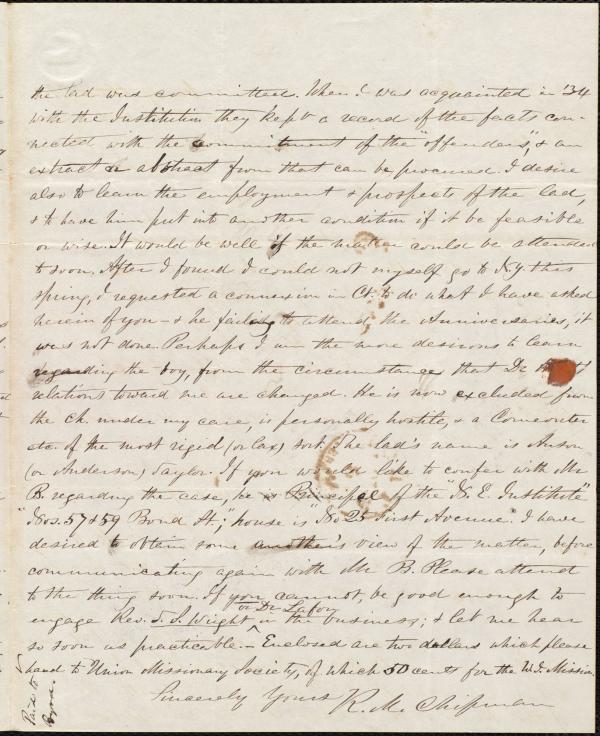 the lad was committed. When I was acquainted in '34
with the Institution they kept a record of the facts con-
nected with the commitment of the "offenders", & an
extract or abstract from that can be procured. I desire
also to learn the employment & prospects of the lad,
& to have him put into another condition if it be feasible
or wise. It would be well if the matter could be attended
to soon. After I found I could not myself go to N.Y. this
spring, I requested a connexion in Ct. to do what I have asked
herein of you - & he failing to attend the Anniversaries, it
was not done. Perhaps I am the more desirous to learn
regarding the boy, from the circumstances that Dr
relations toward me are changed. He is now excluded from
the ch. under my care, is personally hostile, & a Comeouter
etc. of the most rigid (or lax) sort. The lad's name is Anson
(or Anderson) Taylor. If you would like to confer with Mr
B. regarding the case, he is Principal of the "N. E. Institute"
"Nos. 57 & 59 Bond St.", house is "No 25 First Avenue. I have
desired to obtain some another's view of the matter, before
communicating again with Mr B. Please attend
to the thing soon. If you cannot, be good enough to
engage Rev. T. S. Wright or Dr Lafon in the business; & let me hear
so soon as practicable. - Enclosed are two dollars which please
hand to Union Missionary Society, of which 50 cents for the W.I. Mission.
Sincerely Yours R. M. Chipman
Paid to